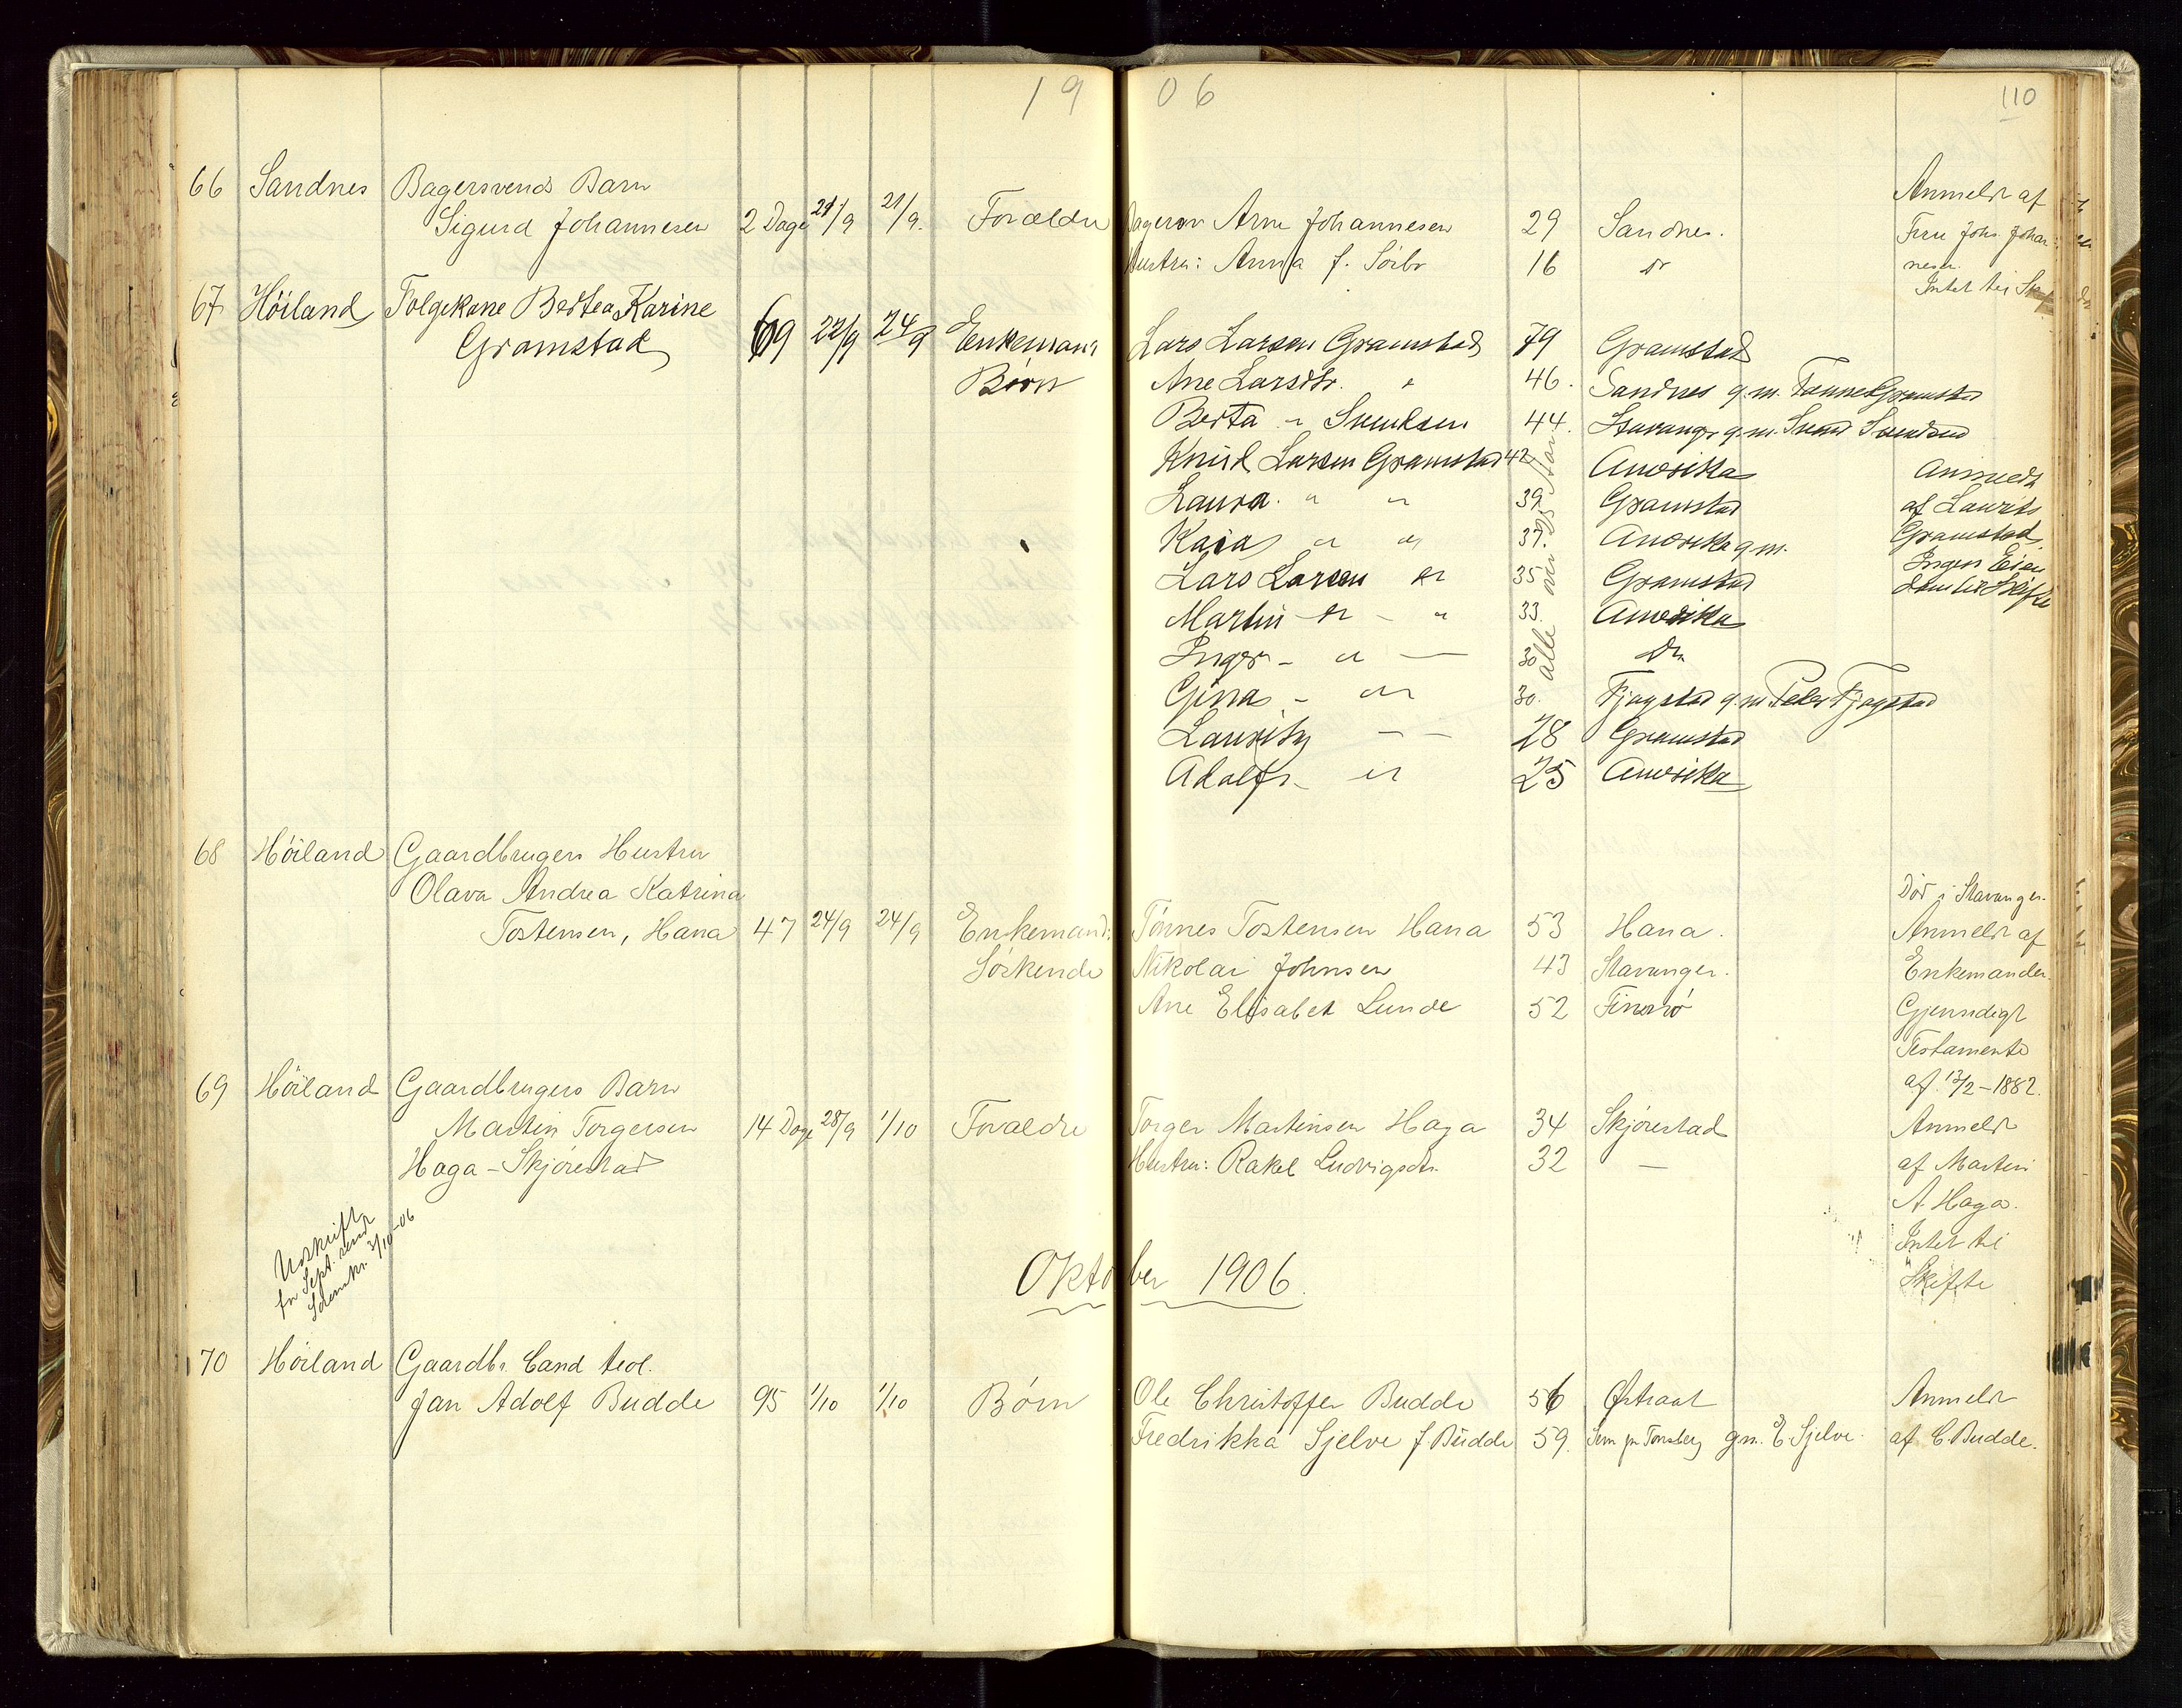 19 06
110
66 Sandnes Bagersvends Barn
Anmeldt af
Sigurd Johannesen 2 Dage 21/9 21/9. Forældre Bagersv Arne Johannesen 29 Sandnes. Fru Johs. Johan-
Hustru: Anna f. Sörbr 16 Do nesen.
Intet til
67 Höiland Folgekone Bertea Karine
Gramstad 69 22/9 24/9 Enkemand Lars Larsen Gramstad 79 Gramstad
Börn Ane Larsdtr. " 46. Sandnes g.m. Tønnes Gramstad
Berta " Svendsen 44. Stavanger g.m. Svend Svendsen
Knud Larsen Gramstad 42 Amerika Anmeldt
Laura " " 39. Gramstad af Laurits
Kaia " " 37. Amerika g.m. Gramstad.
Lars Larsen " 35 Gramstad Ingen Eien
Martin " - " 33. Amerika dom til Skifte
Inger - " — 30 Do
Gina - " 30. Fjogstad g.m. Peder Fjogstad
Lauritz - - 28 Gramstad
Adolf - " 25 Amerika
alle
68 Höiland Gaardbrugers Hustru
Olava Andrea Katrina
Död i Stavanger.
Tostensen, Hana 47 24/9 24/9 Enkemand: Tönnes Tostensen Hana 53 Hana. Anmeldt af
Söskende Nikolai Johnsen 43 Stavanger. Enkemanden
Ane Elisabet Lunde 52 Finnö Gjensidigt
Testamente
af 13/2-1882.
69 Höiland Gaardbrugers Barn
Martin Torgersen 14 Dage 28/9 1/10 Forældre Torger Martinsen Haga 34 Skjörestad Anmeldt
Haga-Skjörestad Hustru: Rakel Ludvigsdtr. 32 — af Martin
A. Haga.
Intet til
Skifte
Udskrift
for Sept. sendt
Sorenskr. 3/10-06
Oktober 1906.
70 Höiland Gaardbr. Cand teol.
Jan Adolf Budde 95 1/10 1/10 Börn Ole Christoffer Budde 56 Østraat Anmeldt
Fredrikka Sjelve f. Budde 59. Sem pr Tönsberg gm. E. Sjelve. af C. Budde.